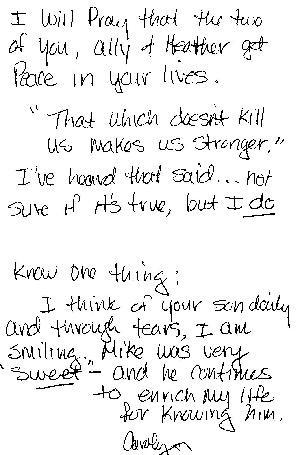 I will Pray that the two
of you, Ally & Heather get
Peace in your lives.
"That which doesn't kill
us makes us stronger."
I've heard that said... not
sure if it's true, but I do
know one thing:
I think of your son daily
and through tears, I am
smiling. Mike was very
"sweet" - and he continues
to enrich my life
for knowing him.